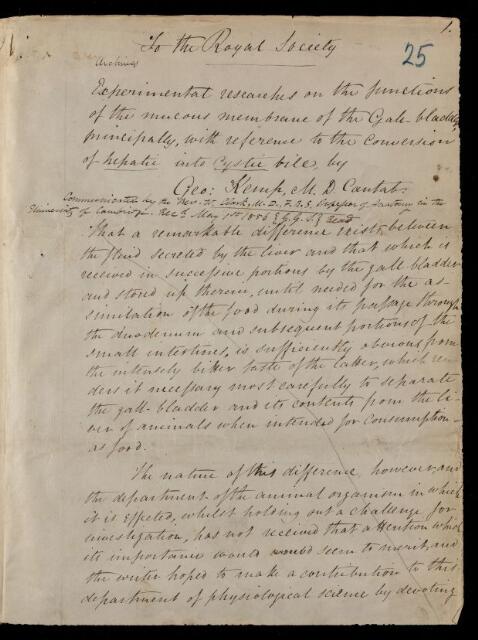 1.
To the Royal Society
25
Archives
Experimental researches on the functions
of the mucous membrane of the Gall-bladder,
principally, with reference to the conversion
of hepatic into Cystic bile, by
Geo: Kemp, M.D. Cantab.
Communicated by the Rev. W. Clark, M.D., F.R.S., Professor of Anatomy in the
University of Cambridge. Recd. May 1st 1856 G.G.S. read
That a remarkable difference exists between
the fluid secreted by the liver and that which is
received in successive portions by the gall bladder
and stored up therein, until needed for the as-
similation of the food during its passage through
the duodenum and subsequent portions of the
small intestines, is sufficiently obvious from
the intensely bitter taste of the latter, which ren-
ders it necessary most carefully to separate
the gall-bladder and its contents from the li-
ver of animals when intended for consumption
as food.
The nature of this difference however, and
the department of the animal organism in which
it is effected, whilst holding out a challenge for
investigation, has not received that attention which
its importance would would seem to merit, and
the writer hoped to make a contribution to this
department of physiological science by devoting